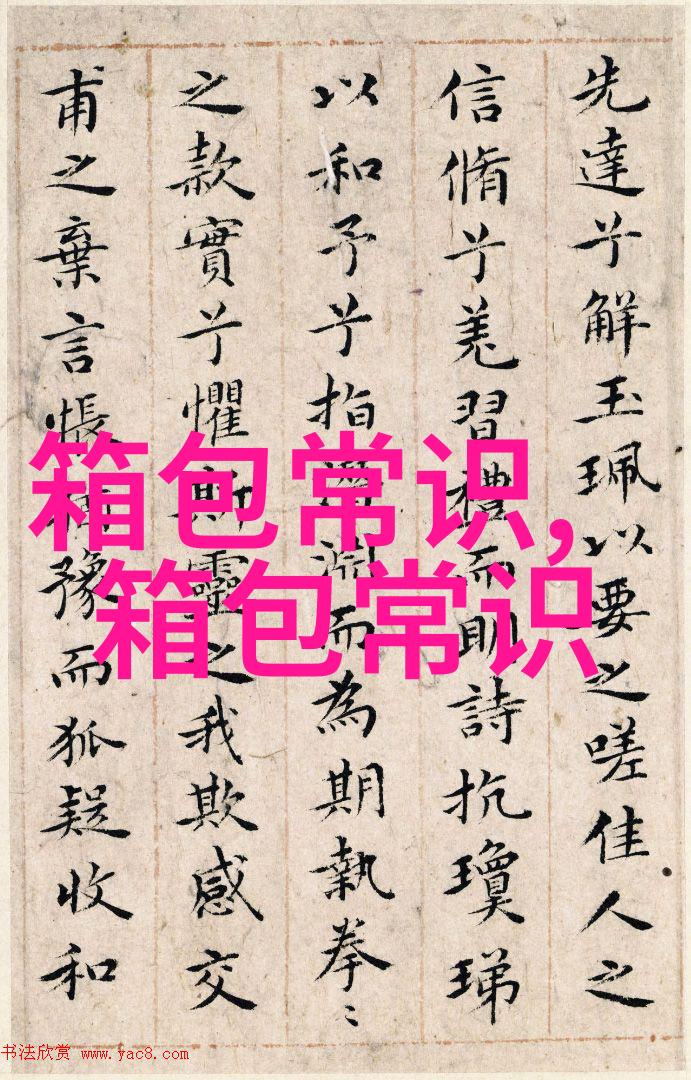 先達兮解玉珮以要之嗟佳人之
信脩兮羌習禮而明詩抗瓊珶
以和予兮指淵而為期執拳〻
之款實兮懼斯靈之我欺感交
甫之棄言悵豫而狐疑收和
箱包常识,
箱包常识
书法欣赏 www.yac8.com